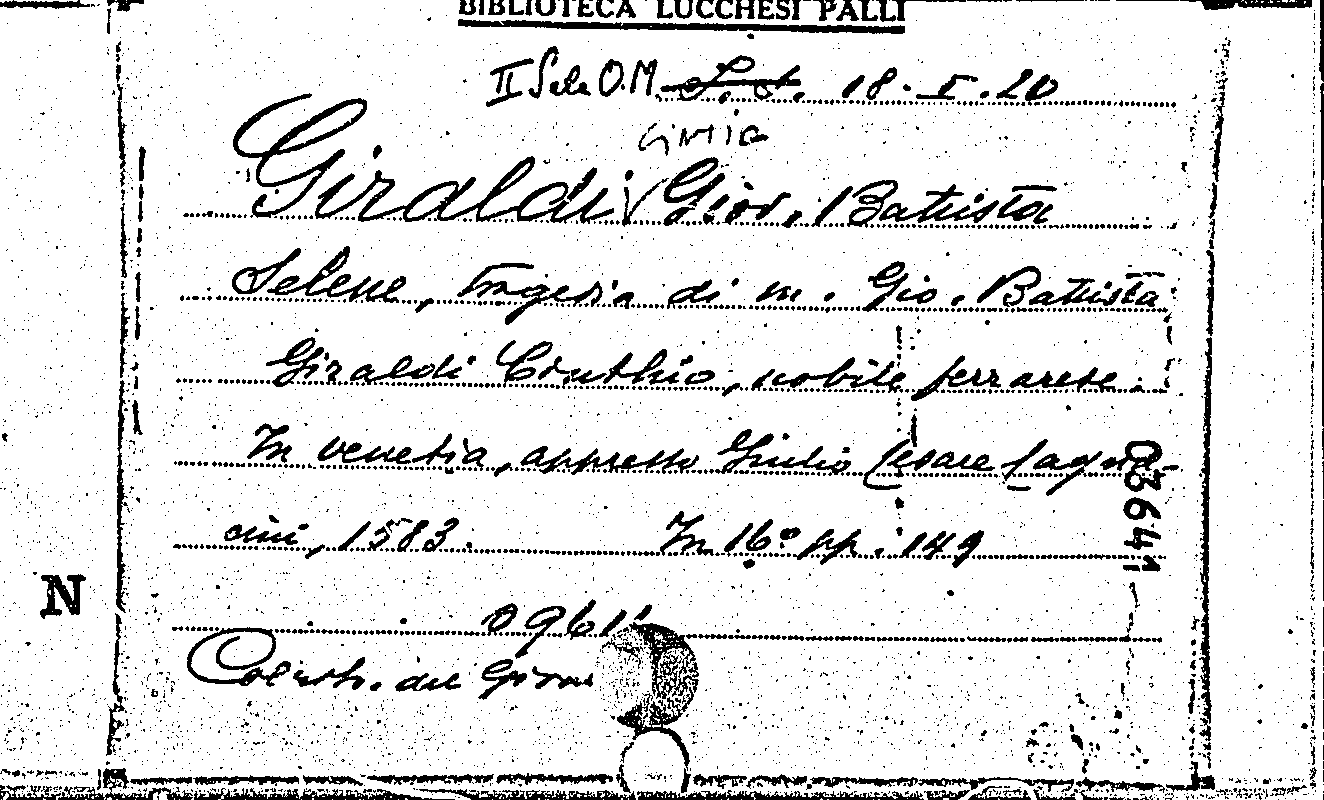 BIBLIOTECA LUCCHESI PALLI
II Sala O.M. S. S. 18.I.20
Cintia
Giraldi (Giov. Battista
Selene, tragedia di m. Gio. Battista
Giraldi Cinthio, nobile ferrarese.
In venetia, appresso Giulio Cesare Cagna-
cini, 1583. In 16° pp. 149
03641
N
0961
due